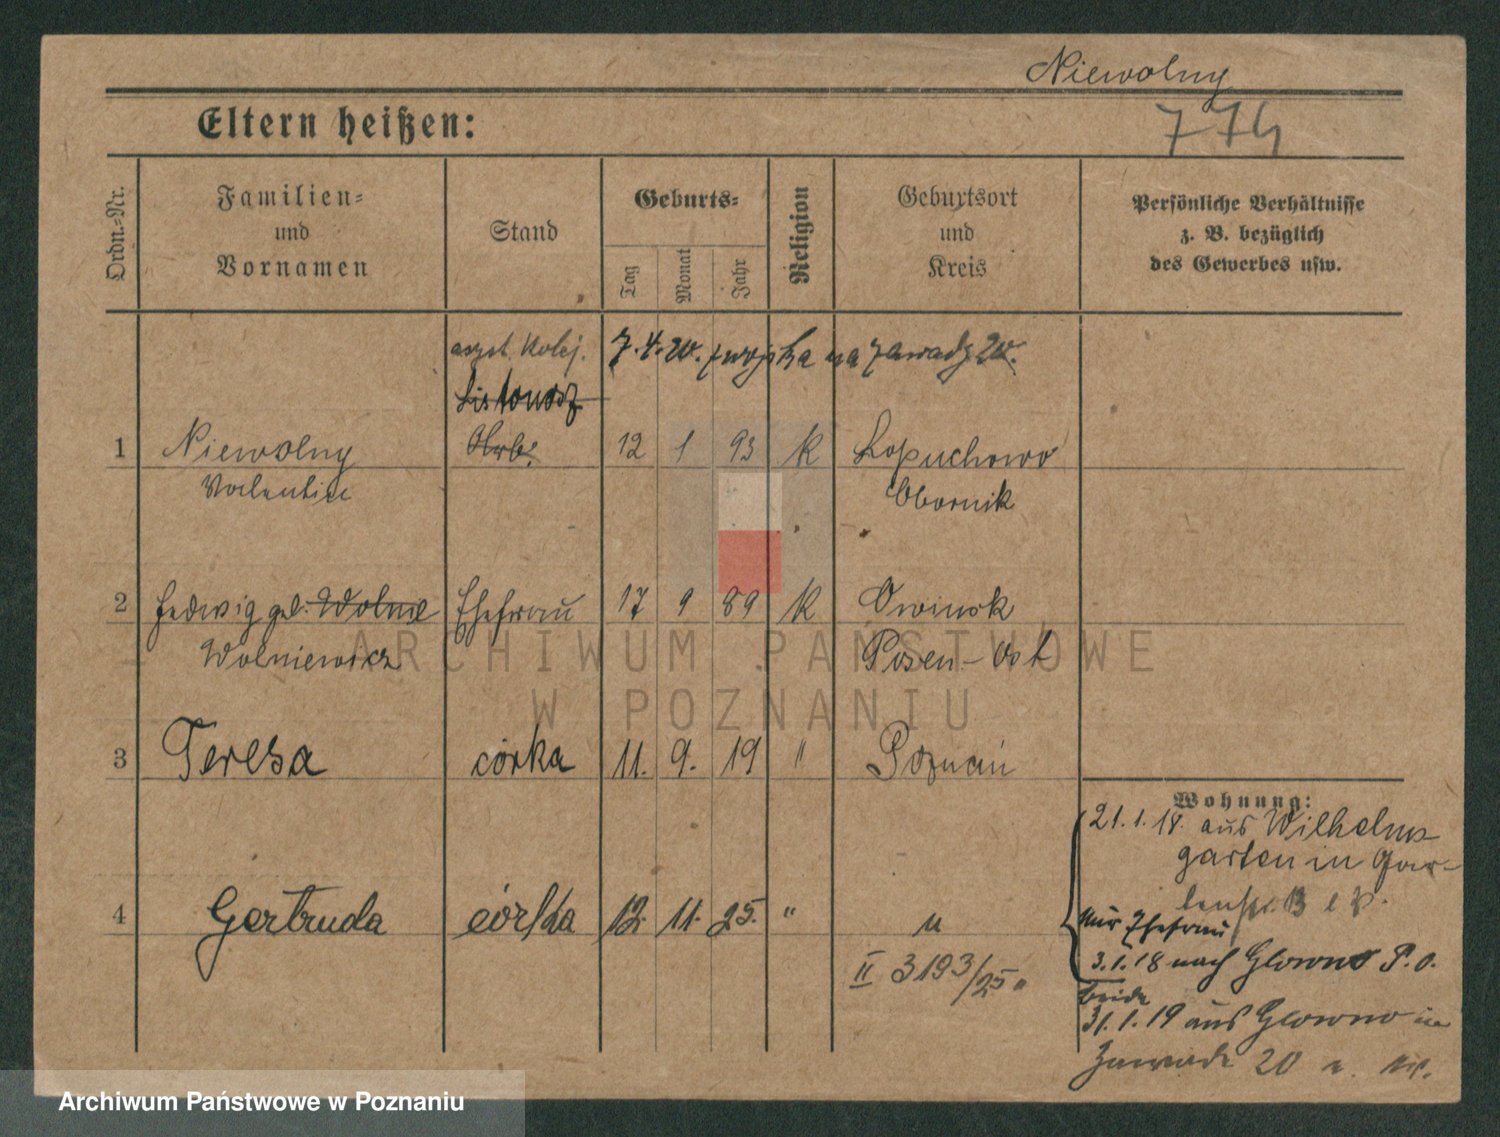 Niewolny
774
Eltern heißen:
Ordn.-Nr.
Familien-
und
Vornamen
Stand
Geburts-
Tag
Monat
Jahr
Religion
Geburtsort
und
Kreis
Persönliche Verhältnisse
z. B. bezüglich
des Gewerbes usw.
asyst. Kolej. 7.4.20. z wojska na Zawady 20.
Listonosz
1 Niewolny Arb. 12 1 93 K Łopuchowo
Valentin Obornik
2 Hedwig geb. Wolne Ehefrau 17 9 89 K Owinsk
Wolniewicz Posen-Ost
3 Teresa córka 11. 9. 19 " Poznań
Wohnung:
21.1.18. aus Wilhelms
garten in Gar-
4 Gertruda córka 12. 11. 25. " "
nur Ehefrau
3.1.18 nach Glowno P.O.
II 3193/25
beide
31.1.19 aus Glowno in
Zawade 20
ARCHIWUM PAŃSTWOWE
W POZNANIU
Archiwum Państwowe w Poznaniu